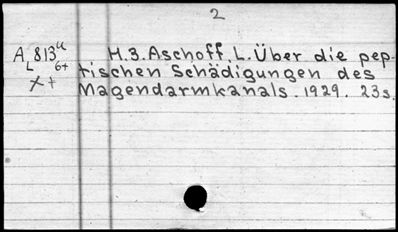 2
A 813u H.3. Aschoff, L. Über die pep-
L 6+ tischen Schädigungen des
X + Magendarmkanals. 1929. 23s.